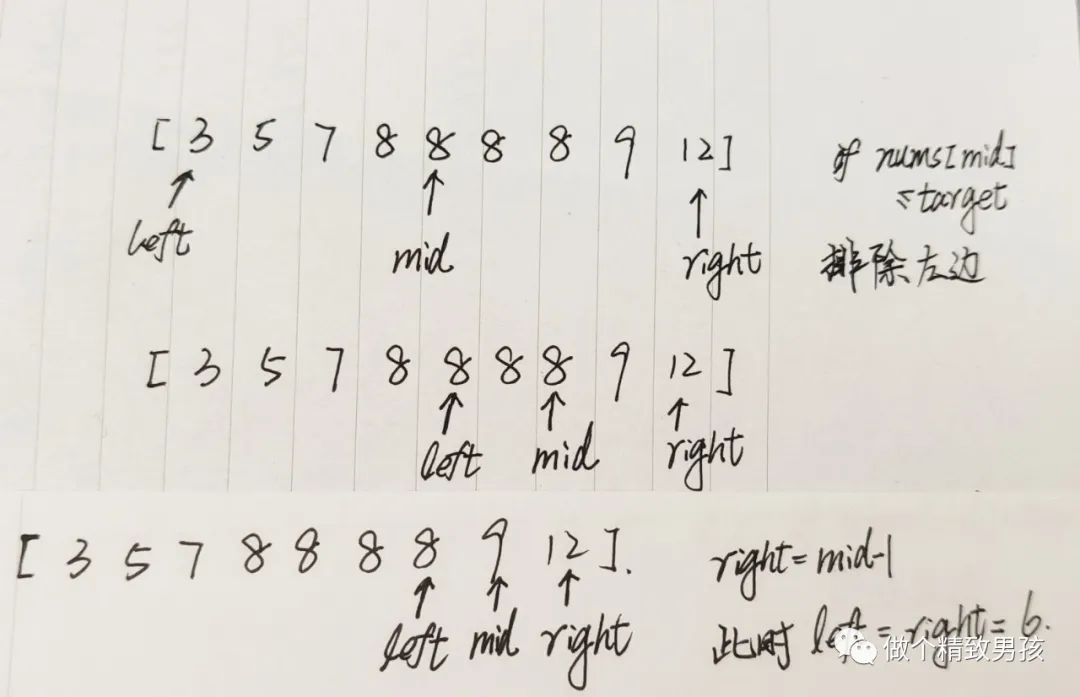 [ 3 5 7 8 8 8 8 9 12]
if nums[mid]
≤target
left
mid
right
排除左边
[ 3 5 7 8 8 8 8 9 12 ]
left
mid
right
[ 3 5 7 8 8 8 8 9 12 ].
left
mid
right
right = mid-1
此时 left = right = 6.
做个精致男孩